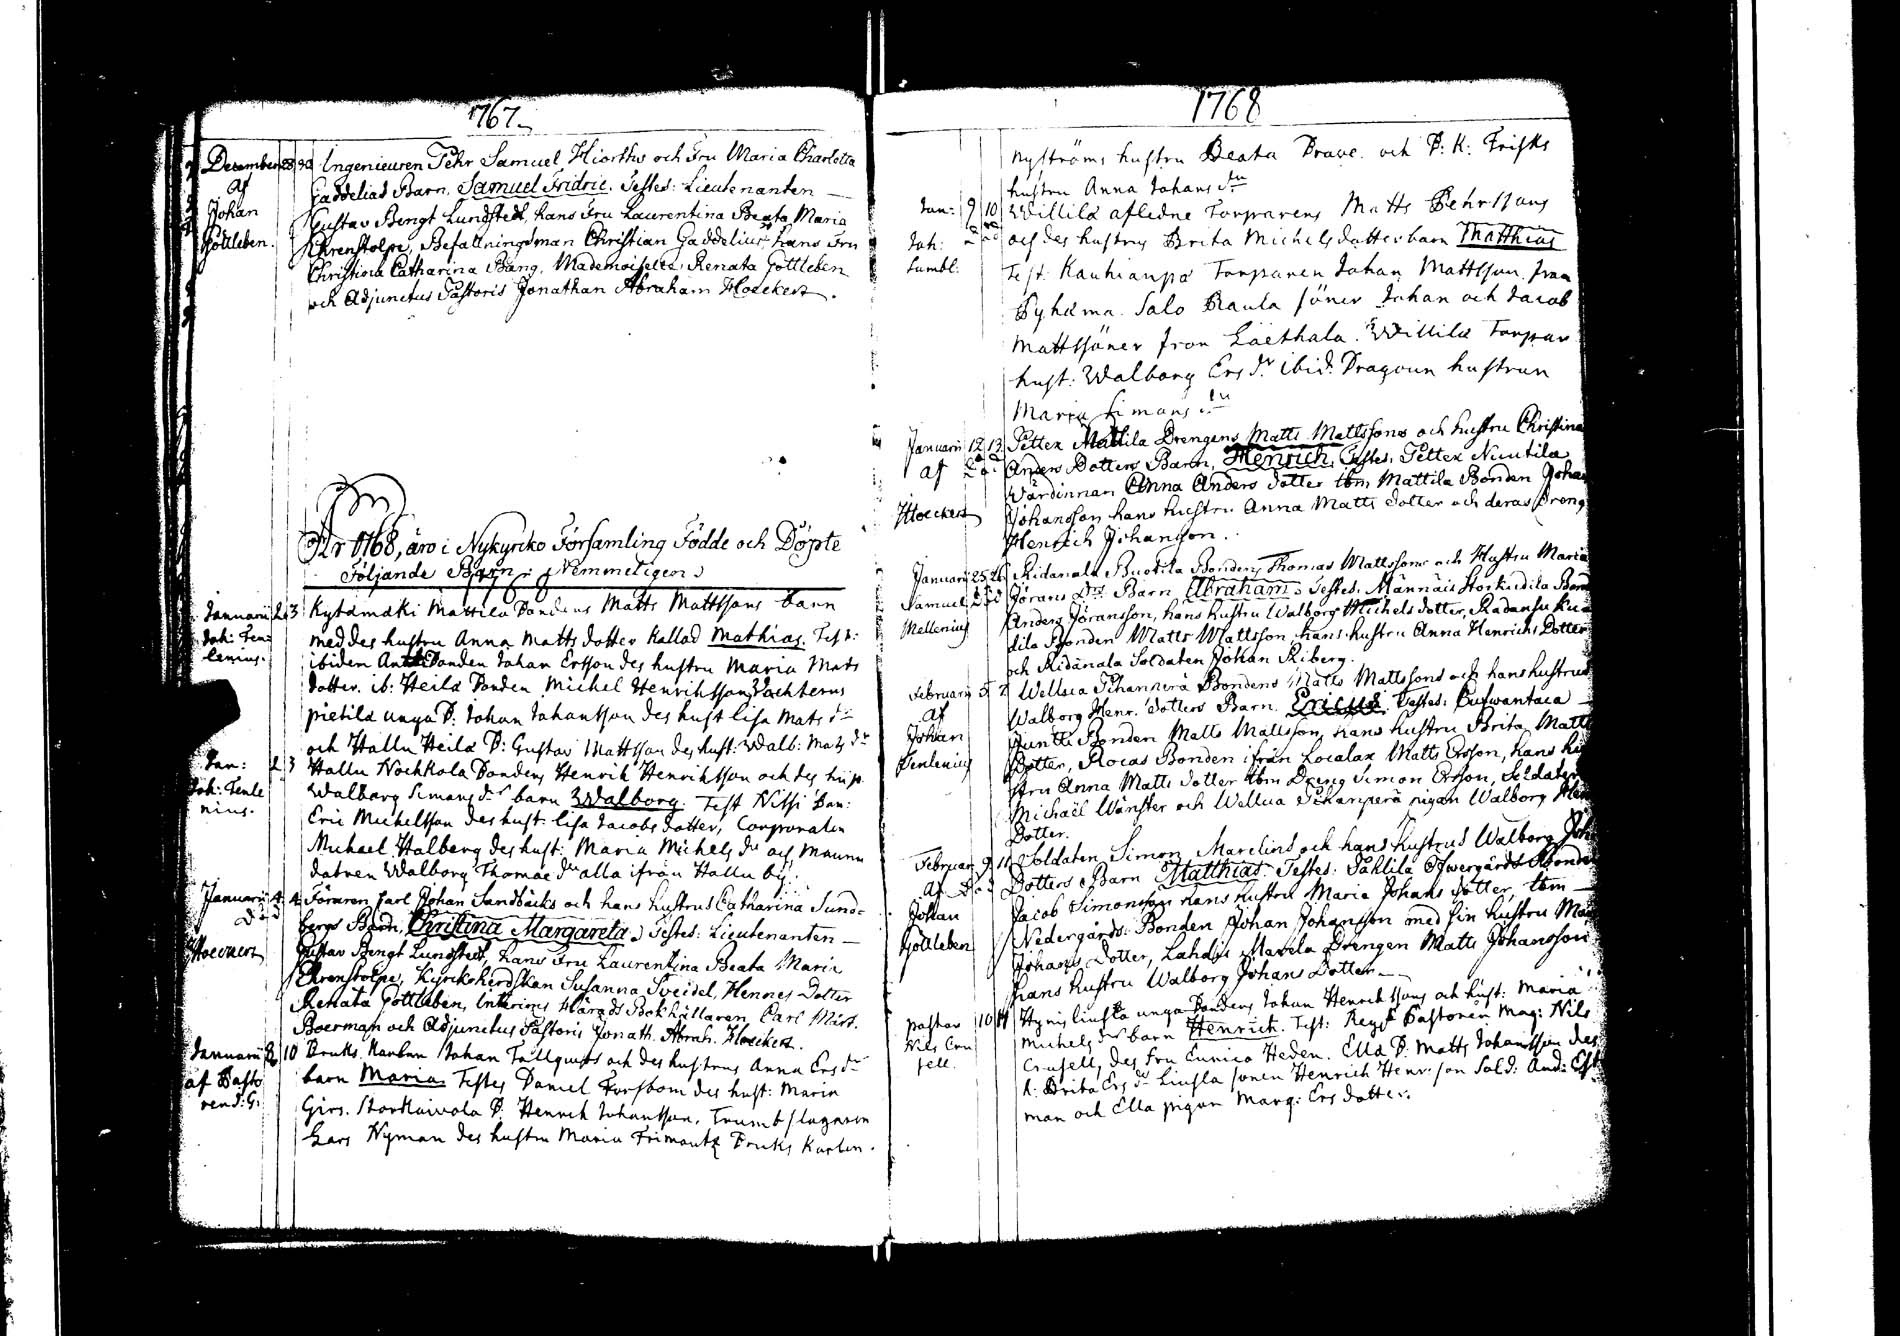 1767
December 28 30 Ingenieuren Pehr Samuel Hiorths och Fru Maria Charlotta
af Gaddelias Barn, Samuel Fridric. Testes: Lieutenanten
Johan Gustav Bengt Lundstedt, hans Fru Laurentina Beata Maria
Gottleben. Ehrenstolpe, Befallningsman Christian Gaddelius, hans Fru
Christina Catharina Bang, Mademoiselle Renata Gottleben
och Adjunctus Pastoris Jonathan Abraham Hoeckert.
År 1768, äro i Nykyrko Församling Födde och Döpte
Följande Barn Nemmeligen:
Januarii 2 3 Kytämäki Mattila Bondens Matts Mattssons barn
Joh: Ten- med des hustru Anna Matts dotter kallad Mathias. Test:
lenius. ibidem Antti Bonden Johan Ersson des hustru Maria Mats
dotter. ib: Heilä Bonden Michel Henriksson
pietilä unga B: Johan Johansson des hust lisa Mats dr
och Hallu Heilä B: Gustav Mattsson des hust: Walb: Mats dr
Jan: 2 3 Hallu Nockkola Bondens Henrik Henriksson och des hust
Joh: Tenle Walborg Simons dr barn Walborg. Test Nissi Bon:
nius. Eric Michelsson des hust lisa Jacobs dotter, Corporalen
Michael Halberg des hust: Maria Michels dr och
Walborg Thomae dr alla ifrån Hallu by.
Januarii 4 4 Föraren Carl Johan Sandbäcks och hans hustrus Catharina Sund-
bergs Barn, Christina Margareta. Testes: Lieutenanten
Hoeckert Gustav Bengt Lundstedt, hans Fru Laurentina Beata Maria
Ehrenstolpe, Kyrkoherdskan Susanna Sveidel, Hennes Dotter
Renata Gottleben, Interims Härads Bokhållaren Carl Mårt.
Boerman och Adjunctus Pastoris Jonath. Abrah. Hoeckert.
Januarii 8 10 Bruks Karlen Johan Fällquists och des hustrus Anna Ers dr
af Pasto barn Maria. Testes Daniel Forsbom des hust: Maria
ren J: G: Girs. Storkaivola B. Henrich Johansson, Trumbslagaren
Lars Nyman des hustru Maria Frimontz Bruks Karlen.
1768
Nyströms hustru Beata Brave. och B: K: Frisks
hustru Anna Johans dr
Jan: 9 10 Willilä afledne Torparens Matts Pehrssons
Joh: och des hustrus Brita Michelsdotter barn Matthias
Sumbl: Test: Kauhianpä Torparen Johan Mattsson från
Pyhämä. Salo Raula söner Johan och Jacob
Mattssöner från Laethala. Willilä Torpar
hust: Walborg Ers dr ibid. Dragoun hustrun
Maria Simons dr
Januarii 12 13 Petter Mattila Drengens Matts Mattssons och hustru Christina
af Anders Dotters Barn, Henrich. Testes: Petter Nuutila
Wärdinnan Anna Anders dotter tbm, Mattila Bonden Johan
Hoeckert Johansson hans hustru Anna Matts dotter och deras Dreng
Henrich Johanson.
Januarii 25 26 Ridanala Buotila Bondens Thomas Mattssons och Hustru Maria
Samuel Jörans Drs Barn Abraham. Testes. Männäis Storkidila Bond
Mellenius Anders Jöransson, hans hustru Walborg Michels dotter,
dila Bonden Matts Mattsson, hans hustru Anna Henrichs Dotter
och Ridanala Soldaten Johan Riberg.
Februarii 5 7 Wellua Pihanperä Bondens Matts Mattssons och hans hustrus
af Walborg Henr. dotters Barn. Ericus. Testes:
Johan Juntti Bonden Matts Mattsson, hans hustru Brita Matts
Tenlenius Dotter, Rocas Bonden ifrån Localax Matts Ersson, hans hu
stru Anna Matts dotter tbm Dreng Simon Ersson, Soldaten
Michaël Wänster och Wellua Pihanperä pigan Walborg Hen
Dotter.
Februarii 9 11 Soldaten Simon Marelins och hans hustrus Walborg Joh
af Dotters Barn Matthias. Testes: Pahlila Öfwergårds Bonden
Johan Jacob Simonsson hans hustru Maria Johans dotter, tbm
Gottleben Nedergårds Bonden Johan Johansson med sin hustru Mar
Johans Dotter, Lahdis Marela Drengen Matts Johansson
hans hustru Walborg Johans Dotter
pastor 10 14 unga Bondens Johan Henrikssons och hust: Maria
Nils Cru Michels dr barn Henrich. Test: Reg: Pastoren Mag: Nils
sell. Crusell, des Fru Eunica Heden. Ella B: Matts Johansson des
h: Brita Ers dr Liusla sonen Henrich Henr: son Sold: And: Est
man och Ella pigan Marg: Ers dotter.